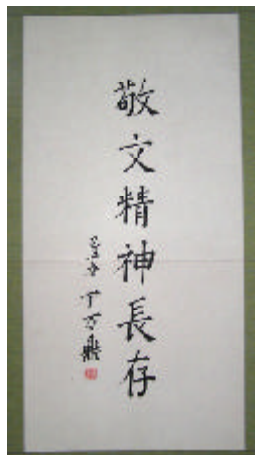 敬文精神長存
丁石孫